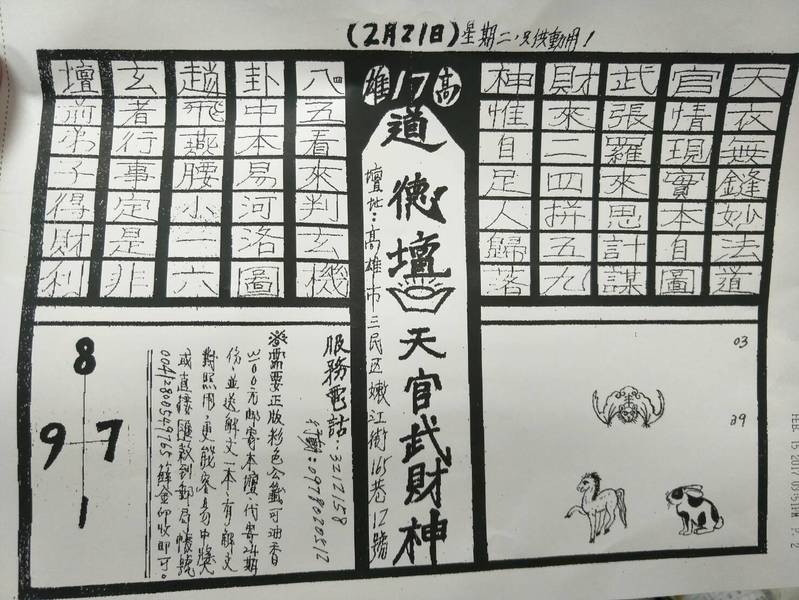 (2月21日)星期二，只供動用！
天衣無縫妙法道
官情現實本自圖
武張羅來思計謀
財來二四拼五九
神惟自足人歸落
高17雄
道德壇
天官武財神
壇址：高雄市三民区嫩江街165巷12號
八四五看來判玄機
卦中本易河洛圖
趙飛燕腰小一六
玄者行事定是非
壇前弟子得財利
03
29
服務電話：3212158
行動：0978020512
需要正版彩色公籤可油香
3100元郵寄本壇代寄24期
份，並送解文一本，有解文
對照用，更能容易中獎
或直接匯款到郵局帳號
收即可。
8
9 7
1
FEB. 15 2017 03:51PM P. 2